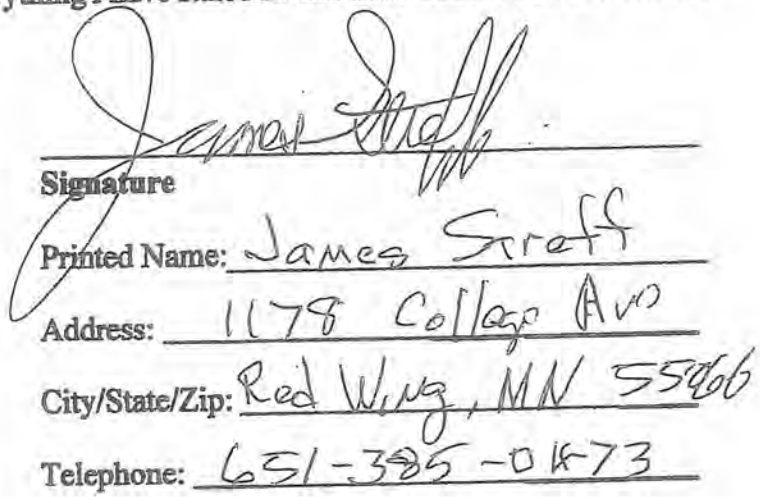 James Streff
Signature
Printed Name: James Streff
Address: 1178 College Ave
City/State/Zip: Red Wing, MN 55066
Telephone: 651-385-